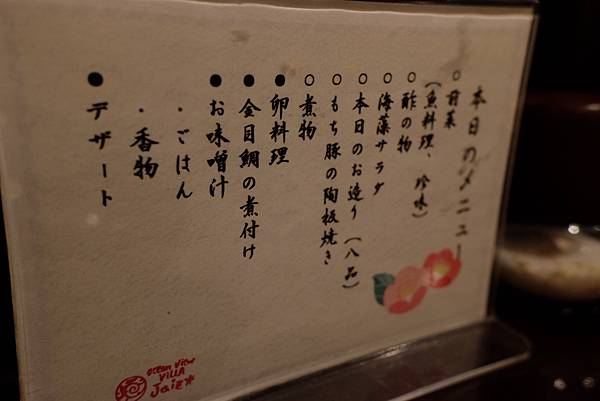 本日のメニュー
○前菜
(魚料理、珍味)
○酢の物
○海藻サラダ
○本日のお造り(八品)
○もち豚の陶板焼き
○煮物
●卵料理
●金目鯛の煮付け
●お味噌汁
・ごはん
・香物
●デザート
Ocean View
VILLA
Jaiz*